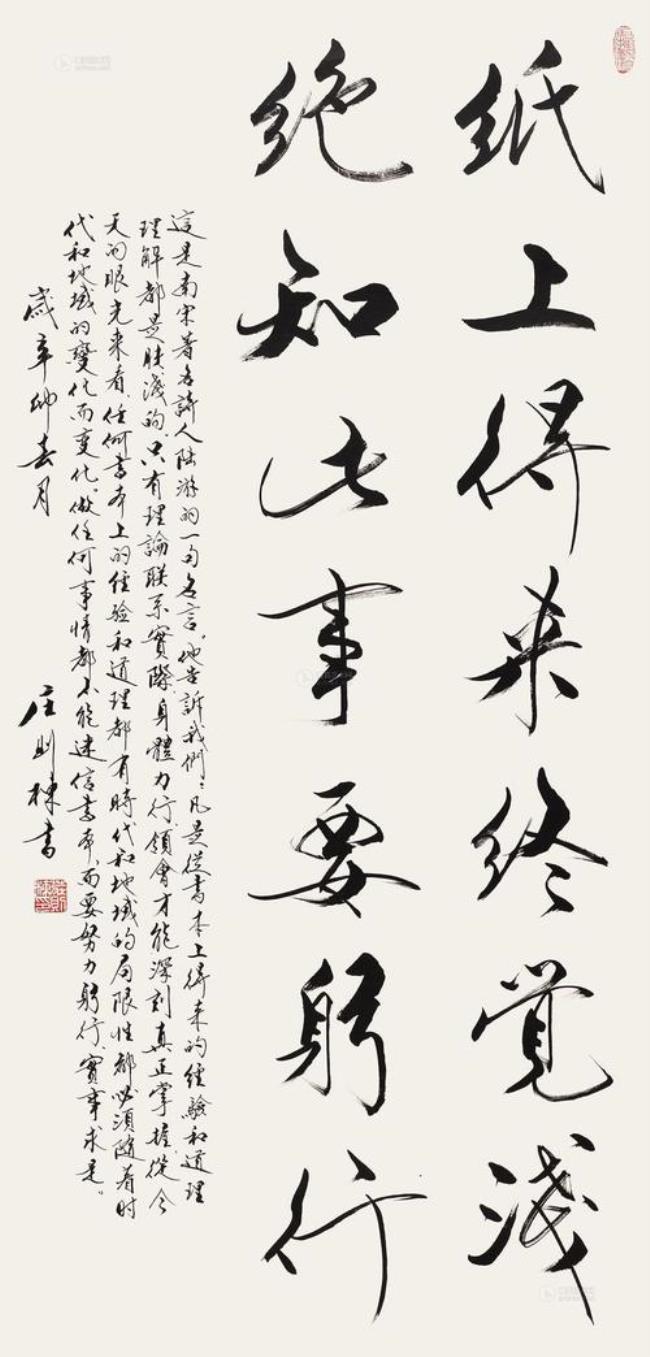 纸上得来终觉淺
绝知此事要躬行
這是南宋著名詩人陆游的一句名言。他告訴我們：凡是從書本上得来的经驗和道理
理解都是肤淺的，只有理論联系實際，身體力行，領會才能深刻真正掌握。從今
天的眼光来看，任何書本上的经验和道理都有時代和地域的局限性都必須隨着时
代和地域的變化而变化。做任何事情都不能迷信書本，而要努力躬行、實事求是。
歲辛卯春月
庄则棟書